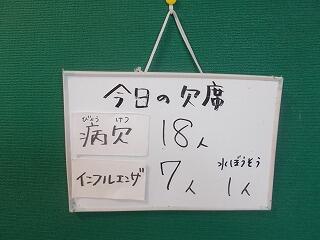 今日の欠席
びょう けつ
病欠 18人
水ぼうそう
インフルエンザ 7人 1人